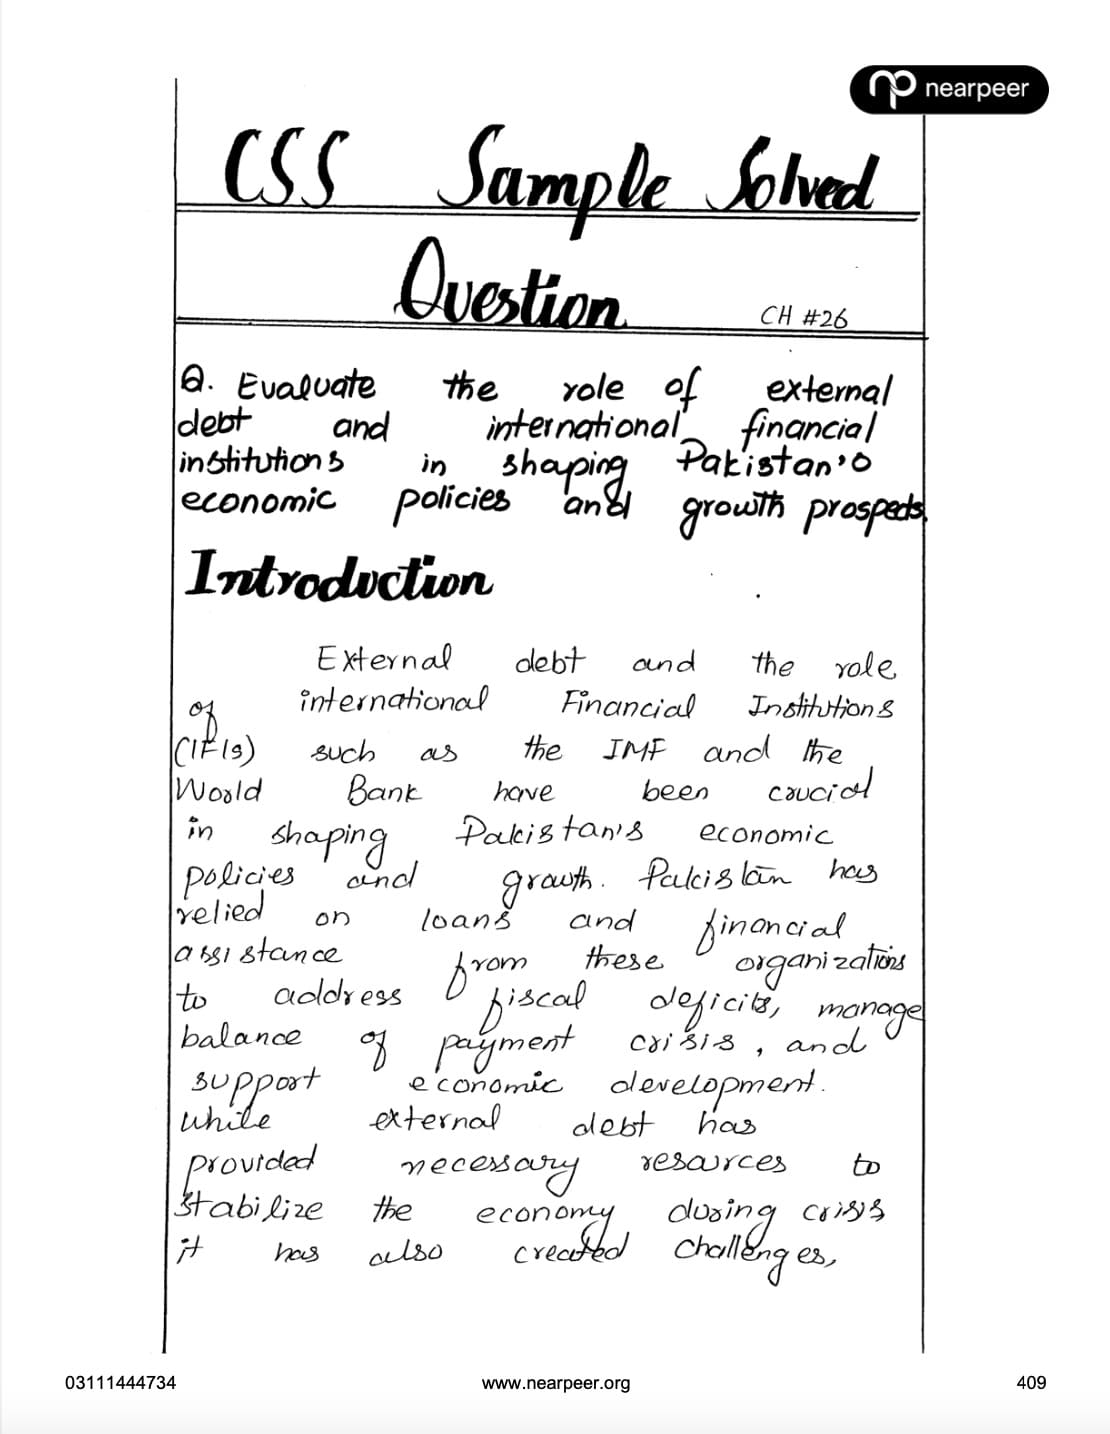 nearpeer
CSS Sample Solved
Question
CH #26
Q. Evaluate the role of external
debt and international financial
institutions in shaping Pakistan's
economic policies and growth prospects.
Introduction
External debt and the role
of international Financial Institutions
(IFIs) such as the IMF and the
World Bank have been crucial
in shaping Pakistan's economic
policies and growth. Pakistan has
relied on loans and financial
assistance from these organizations
to address fiscal deficits, manage
balance of payment crisis, and
support economic development.
While external debt has
provided necessary resources to
stabilize the economy during crisis
it has also created challenges,
03111444734 www.nearpeer.org 409